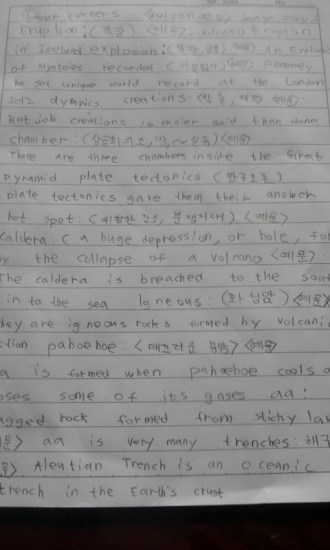 Eruption: (폭발) <예문>: Volcano Eruption
in Iceland explosion: <예문> An Explosion
of Mysteries recorded (기록된) <예문> Recently,
he set unique world record at the London
2012 olympics creations: <예문>
But job creations is easier said than done
chamber: <예문>
There are three chambers insite the Great
pyramid plate tectonics (판구조론)
plate tectonics gave them their answer
hot spot: (위험한 장소, 분쟁지대) <예문>
caldera (a huge depression, or hole, for
by the collapse of a volcano <예문>:
The caldera is breached to the sout
in to the sea Igneous: (화성암) <예문>
hey are igneous rocks ormed by volcani
ction. pahoehoe: <매끄러운 용암> <예문>
a is formed when pahoehoe cools a
oses some of its gases aa:
agged rock formed from stichy lav
문> aa is very many trenches: 해구
문> Aleutian Trench is an oceanic
trench in the Earth's crust